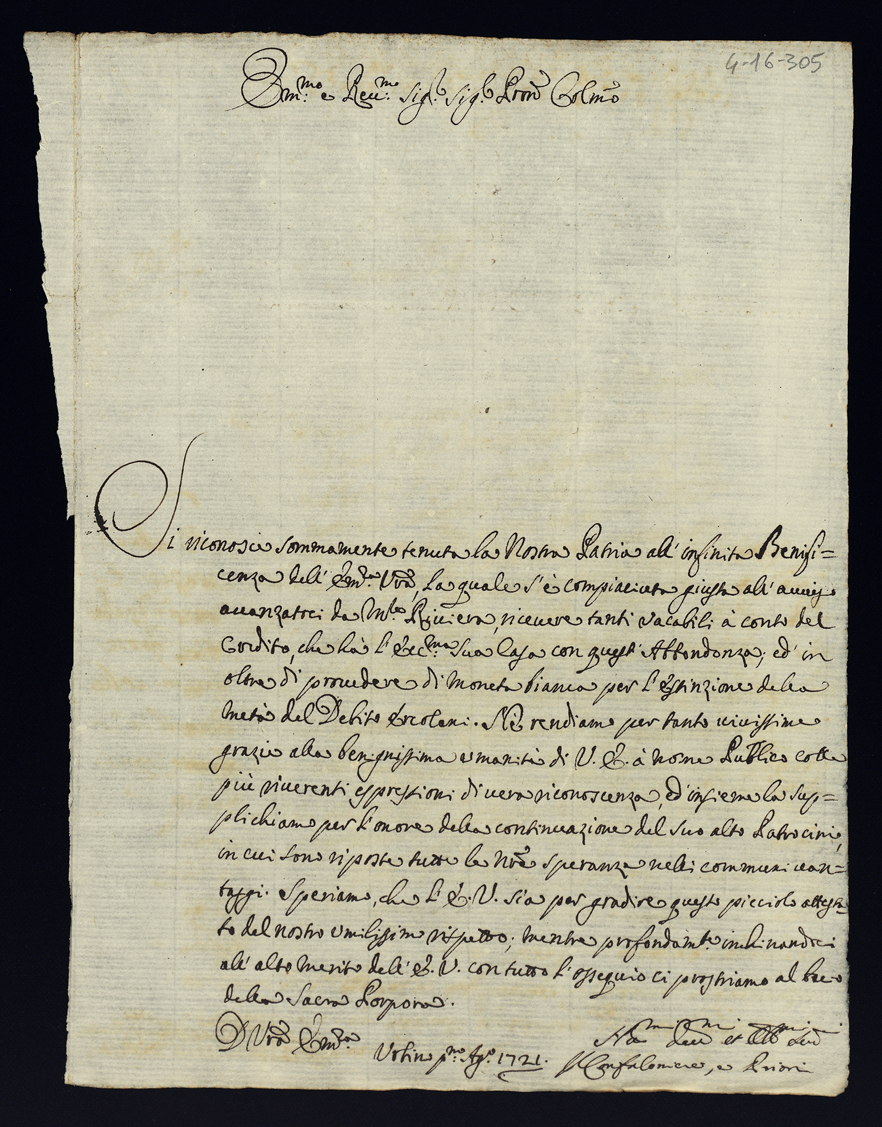 4-16-305
Em:mo e Reu:mo Sig.r Sig.r Pron̄e Colmo
Si riconosce sommamente tenuta la Nostra Patria all' infinita Benifi=
cenza dell' Em:za Vra, la quale s'è compiaciuta giusta all' auuiso
auanzatoci da M:re Riuiera, riceuere tanti vacabili à conto del
Credito, che hà l' Ecc:ma Sua Casa con quest' Abbondanza; ed' in
oltre di prouedere di moneta bianca per l' Estinzione della
metà del Debito Ercolani. Ne rendiamo per tanto viuissime
grazie alla benignissima umanità di V. E. à nome Publico colle
più riuerenti espressioni di vera riconoscenza, ed' insieme la sup=
plichiamo per l'onore della continuazione del suo alto Patrocinio,
in cui sono riposte tutte le Nre speranze nelli communi uan=
taggi. Speriamo, che l' E. V. sia per gradire questo picciolo attesta=
to del nostro umilissimo rispetto; mentre profondam:te inchinandoci
all' alto merito dell' E. V. con tutto l'ossequio ci prostriamo al bacio
della Sacra Porpora.
D Vra Em:za
Urbino p:mo Ag:o 1721.
Deu et Obb
Confaloniere, e Priori